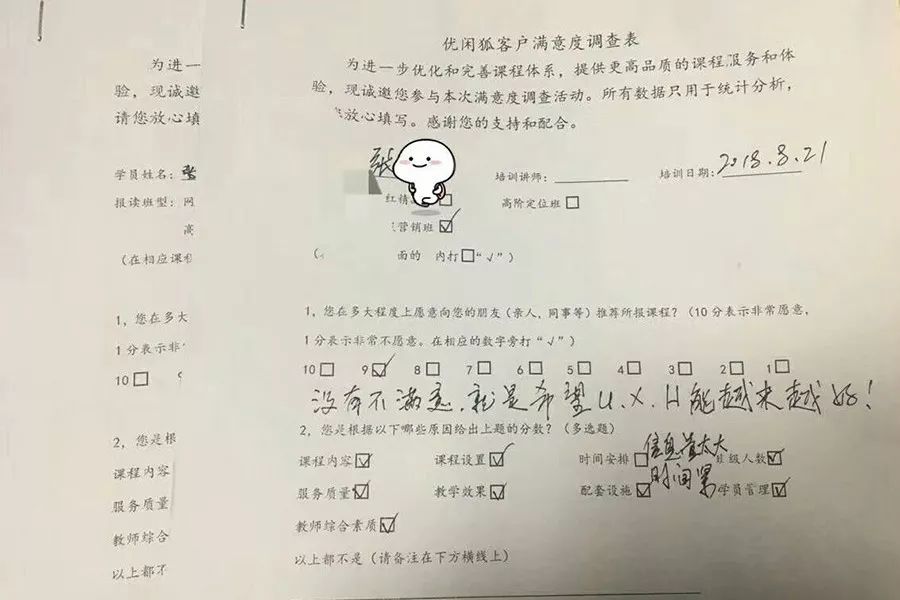 优闲狐客户满意度调查表
为进一步优化和完善课程体系，提供更高品质的课程服务和体
验，现诚邀您参与本次满意度调查活动。所有数据只用于统计分析，
您放心填写。感谢您的支持和配合。
张
培训讲师：
培训日期：2018.8.21
高阶定位班□
营销班☑
面的 内打□“√”）
1，您在多大程度上愿意向您的朋友（亲人、同事等）推荐所报课程？（10分表示非常愿意，
1分表示非常不愿意。在相应的数字旁打“√”）
10□ 9☑ 8□ 7□ 6□ 5□ 4□ 3□ 2□ 1□
没有不满意，就是希望U.X.H能越来越好！
2，您是根据以下哪些原因给出上题的分数？（多选题）
信息量太大
课程内容☑ 课程设置☑ 时间安排□ 班级人数☑
时间紧
服务质量☑ 教学效果☑ 配套设施☑ 学员管理☑
教师综合素质☑
以上都不是（请备注在下方横线上）
为进一
验，现诚邀
请您放心填
学员姓名：张
报读班型：网
高
（在相应课程
1，您在多大
1分表示非常
10□ 9
2，您是根
课程内容
服务质量
教师综合
以上都不